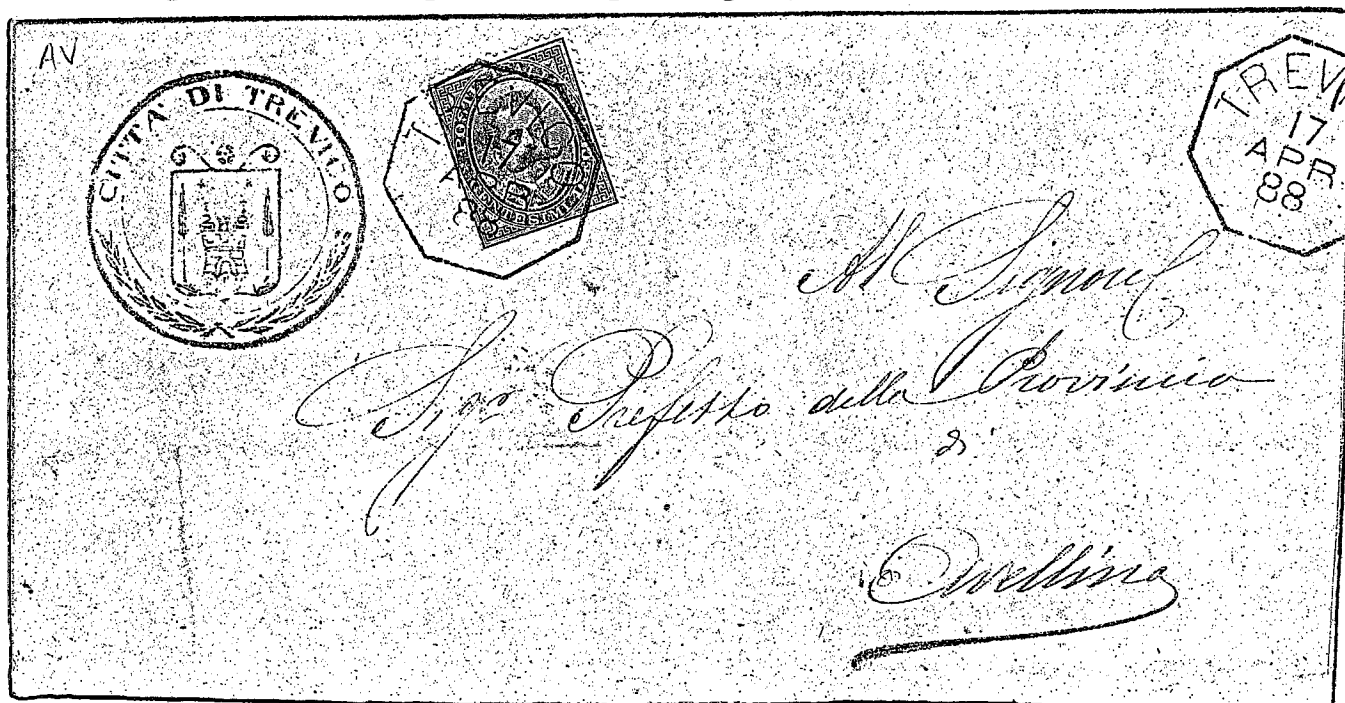 AV
CITTA' DI TREVICO
TREVI
17
APR
88
Al Signore
Sigr Prefetto della Provincia
di
Avellino